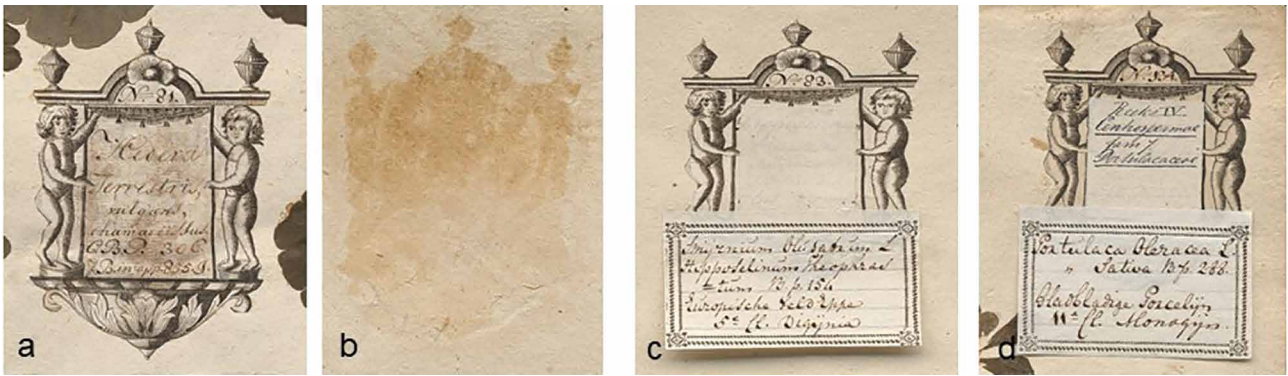 No. 81.
Hedera
Terrestris,
vulgaris,
C.B.P. 306
a
b
No. 83.
Smyrnium Olusatrum L
Hipposelinum Theophras
tum B.p. 154
Europische Veld Eppe
5e Cl. Digynia
c
No. 134.
Reeks IV.
Centrospermae
fam 7
Portulacaceae
Portulaca Oleracea L.
" Sativa B.p. 288.
Bladbladige Porcelijn
11e Cl. Monogyn.
d